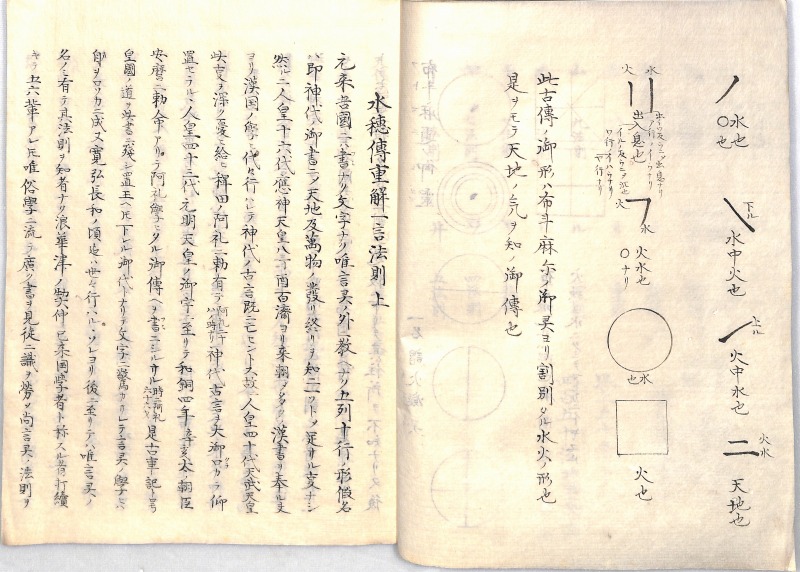 水也
〇也
下ル
水中火也
上ル
火中水也
火水
天地也
水
火
出入息也
火
水
火水也
〇ナリ
水也
火也
此古傳ノ御形ハ布斗麻尓ノ御灵ヨリ割別タル水火ノ形也
是ヲモテ天地ノ气ヲ知ノ御傳也
水穗傳重解一言法則上
元来吾國ニハ書ナリ文字ナリハ唯言灵ノ外ニ教ヘナシ五列十行ノ形假名
ハ即神代御書ニシテ天地及萬物ノ發リ終リヲ知ニヿトシテ足サル変ナシ
然ルニ人皇十六代應神天皇ノ
百濟ヨリ来朝
漢書ヲ奉ル
ヨリ漢国ノ學ヒ代々行ハレテ神代ノ古言既ニ亡ヒントス故ニ人皇四十代天武天皇
此変ヲ深ク憂ヒ給ヒ稗田ノ阿礼ニ勅有テ
神代古言ヲ大御口ツカラ仰
置セラル人皇四十三代元明天皇ノ御宇ニ至リテ和銅四年辛亥太ノ朝臣
安麿ニ勅命アリテ阿礼ノ學ヒタル御傳ヘヲ書ニシルサル
是古事記ト号
皇國ノ道ヲ此書ニ残シ置玉ヘ𪜈下レル御代トナリテ文字ニ
言灵ノ學ヒハ
自ヲロソカニ成又寛弘長和ノ頃迠ハ世ニ行ハル、ソレヨリ後ニ至リテハ唯言灵ノ
名ノミ有テ其法則ヲ知者ナリ浪華津ノ契仲已来国學者ト称スル者打續
キテ五六輩アレ𪜈唯俗學ニ流テ廣ク書ヲ見徒ニ識ヲ労シ尚言灵ノ法則ヲ